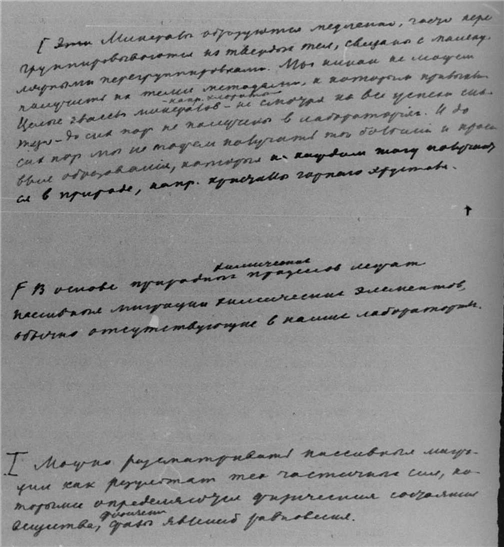 [ Эти минералы образуются медленно, часто пере
группировываются из твердых тел, связаны с молеку
лярными перегруппировками. Мы никак не можем
получить их теми методами, к которым привыкли.
Целые классы минералов - не смотря на все успехи син
теза - до сих пор не получены в лаборатории. И до
сих пор мы не можем получать те большие и краси
вые образования, которые на каждом шагу получают
ся в природе, напр. кристаллы горного хрусталя.
химических
[ В основе природных процессов лежат
пассивные миграции химических элементов,
обычно отсутствующие в наших лабораториях.
I Можно рассматривать пассивные мигра
ции как результат тех частичных сил, ко
торыми определяющих физическия состояния
вещества, фазы явлений равновесия.